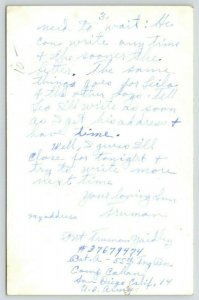 3.
need to wait. He
can write any time
& the sooner the
better. The same
thing goes for Leila
& the other boys. Ill
So I'll write as soon
as I get his address &
have time.
Well, I guess I'll
close for tonight &
try to write more
next time
Your loving Son
Truman
My address
Pvt Truman
#37679474
Bat. A - 55th Tng Bn
Camp Callan
San Diego Calif, 14
U.S. Army